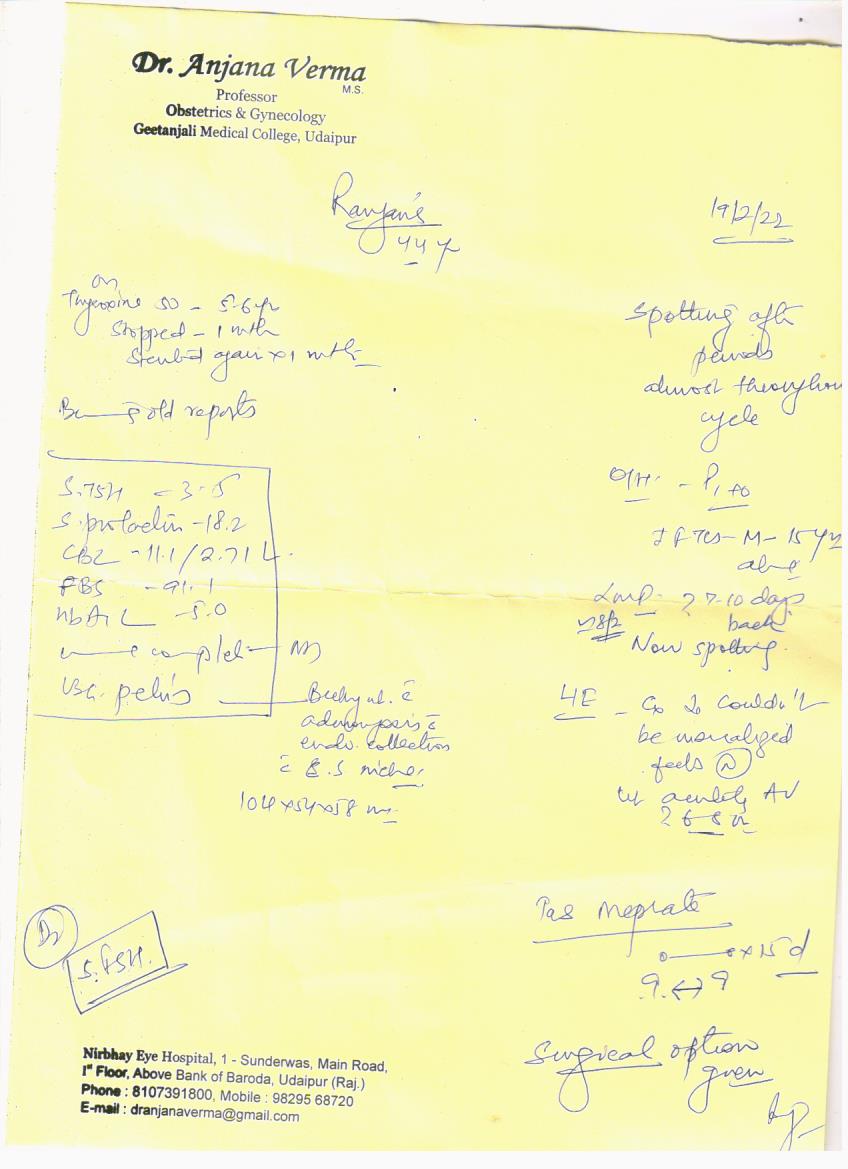 Dr. Anjana Verma
M.S.
Professor
Obstetrics & Gynecology
Geetanjali Medical College, Udaipur
19/2/22
44 y
on
Thyroxine 50 - 5-6 yr
Stopped - 1 mth
Started again x 1 mth
old reports
S. TSH - 3.5
S. prolactin - 18.2
CBC - 11.1 / 2.71 L
FBS - 91.1
HbA1C - 5.0
complete
USG. pelvis
Bulky ut. c
adenomyosis c
endo. collection
c niche
104 x 54 x 58
Spotting after
periods
almost throughout
cycle
O/H -
- M - 15 yr
LMP - ? 7-10 days
back
Now spotting
couldn't
be visualized
feels (N)
ut acutely AV
Tab Meprate
x 15 d
9 ↔ 9
Surgical option
given
S. FSH.
Nirbhay Eye Hospital, 1 - Sunderwas, Main Road,
Ist Floor, Above Bank of Baroda, Udaipur (Raj.)
Phone : 8107391800, Mobile : 98295 68720
E-mail : dranjanaverma@gmail.com